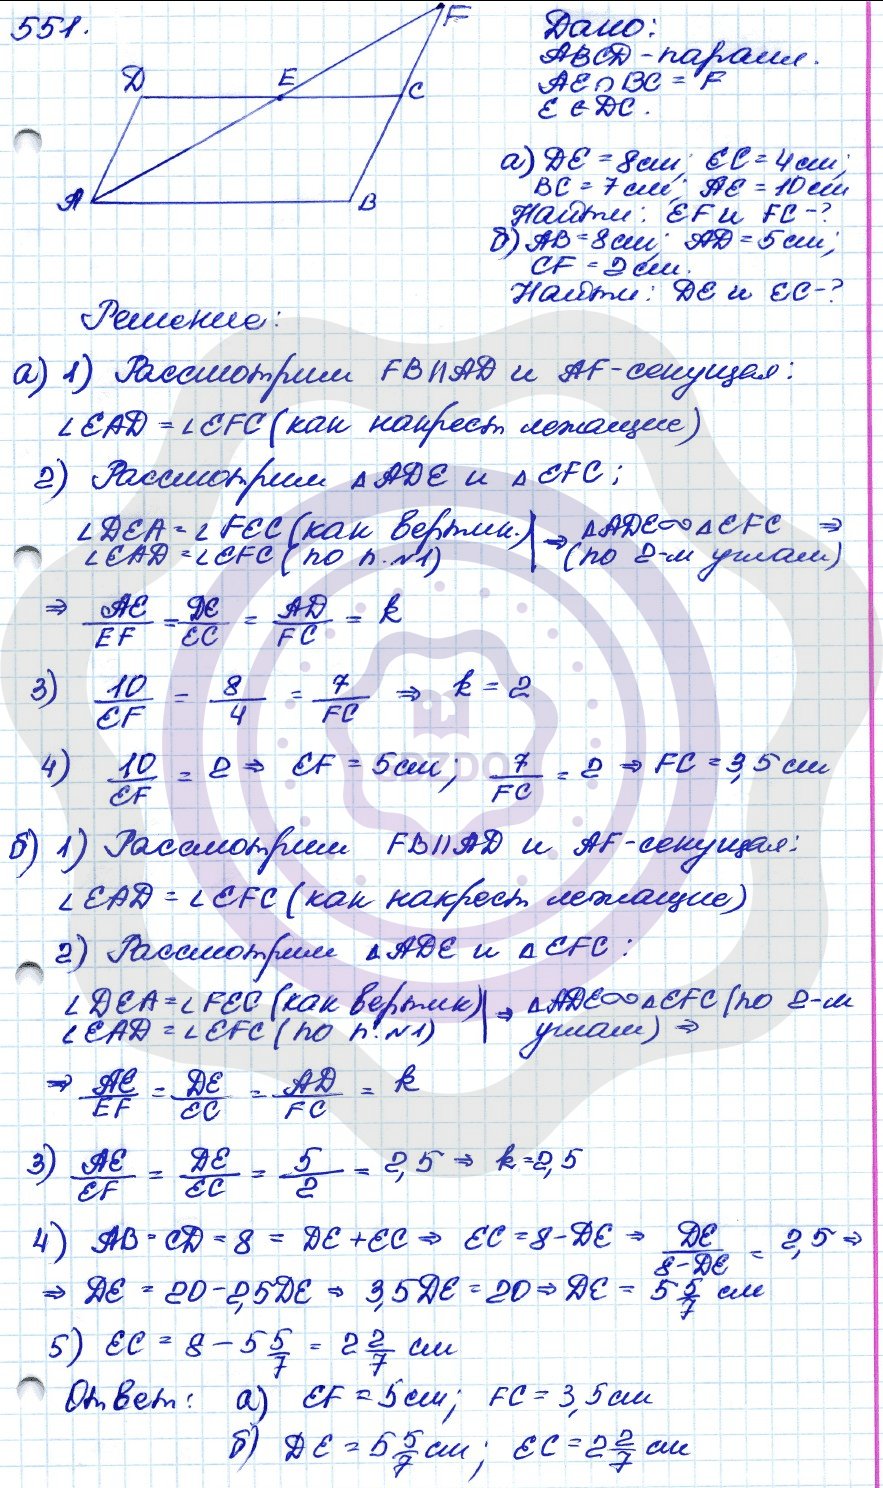 551.
F
D
E
C
A
B
Дано:
ABCD - паралл.
AE ∩ BC = F
E ∈ DC.
а) DE = 8см; EC = 4см;
BC = 7 см; AE = 10см
Найти: EF и FC - ?
б) AB = 8см; AD = 5см;
CF = 2см.
Найти: DE и EC - ?
Решение:
а) 1) Рассмотрим FB || AD и AF - секущая:
∠EAD = ∠EFC (как накрест лежащие)
2) Рассмотрим △ADE и △EFC;
∠DEA = ∠FEC (как вертик.) | ⇒ △ADE ∞ △EFC ⇒
∠EAD = ∠EFC (по п. №1) | (по 2-м углам)
⇒ AE/EF = DE/EC = AD/FC = k
3) 10/EF = 8/4 = 7/FC ⇒ k = 2
4) 10/EF = 2 ⇒ EF = 5см; 7/FC = 2 ⇒ FC = 3,5 см
б) 1) Рассмотрим FB || AD и AF - секущая:
∠EAD = ∠EFC (как накрест лежащие)
2) Рассмотрим △ADE и △EFC:
∠DEA = ∠FEC (как вертик) | ⇒ △ADE ∞ △EFC (по 2-м
∠EAD = ∠EFC (по п. №1) | углам) ⇒
⇒ AE/EF = DE/EC = AD/FC = k
3) AE/EF = DE/EC = 5/2 = 2,5 ⇒ k = 2,5
4) AB = CD = 8 = DE + EC ⇒ EC = 8 - DE ⇒ DE/(8 - DE) = 2,5 ⇒
⇒ DE = 20 - 2,5DE ⇒ 3,5DE = 20 ⇒ DE = 5 5/7 см
5) EC = 8 - 5 5/7 = 2 2/7 см
Ответ: а) EF = 5см; FC = 3,5см
б) DE = 5 5/7 см; EC = 2 2/7 см